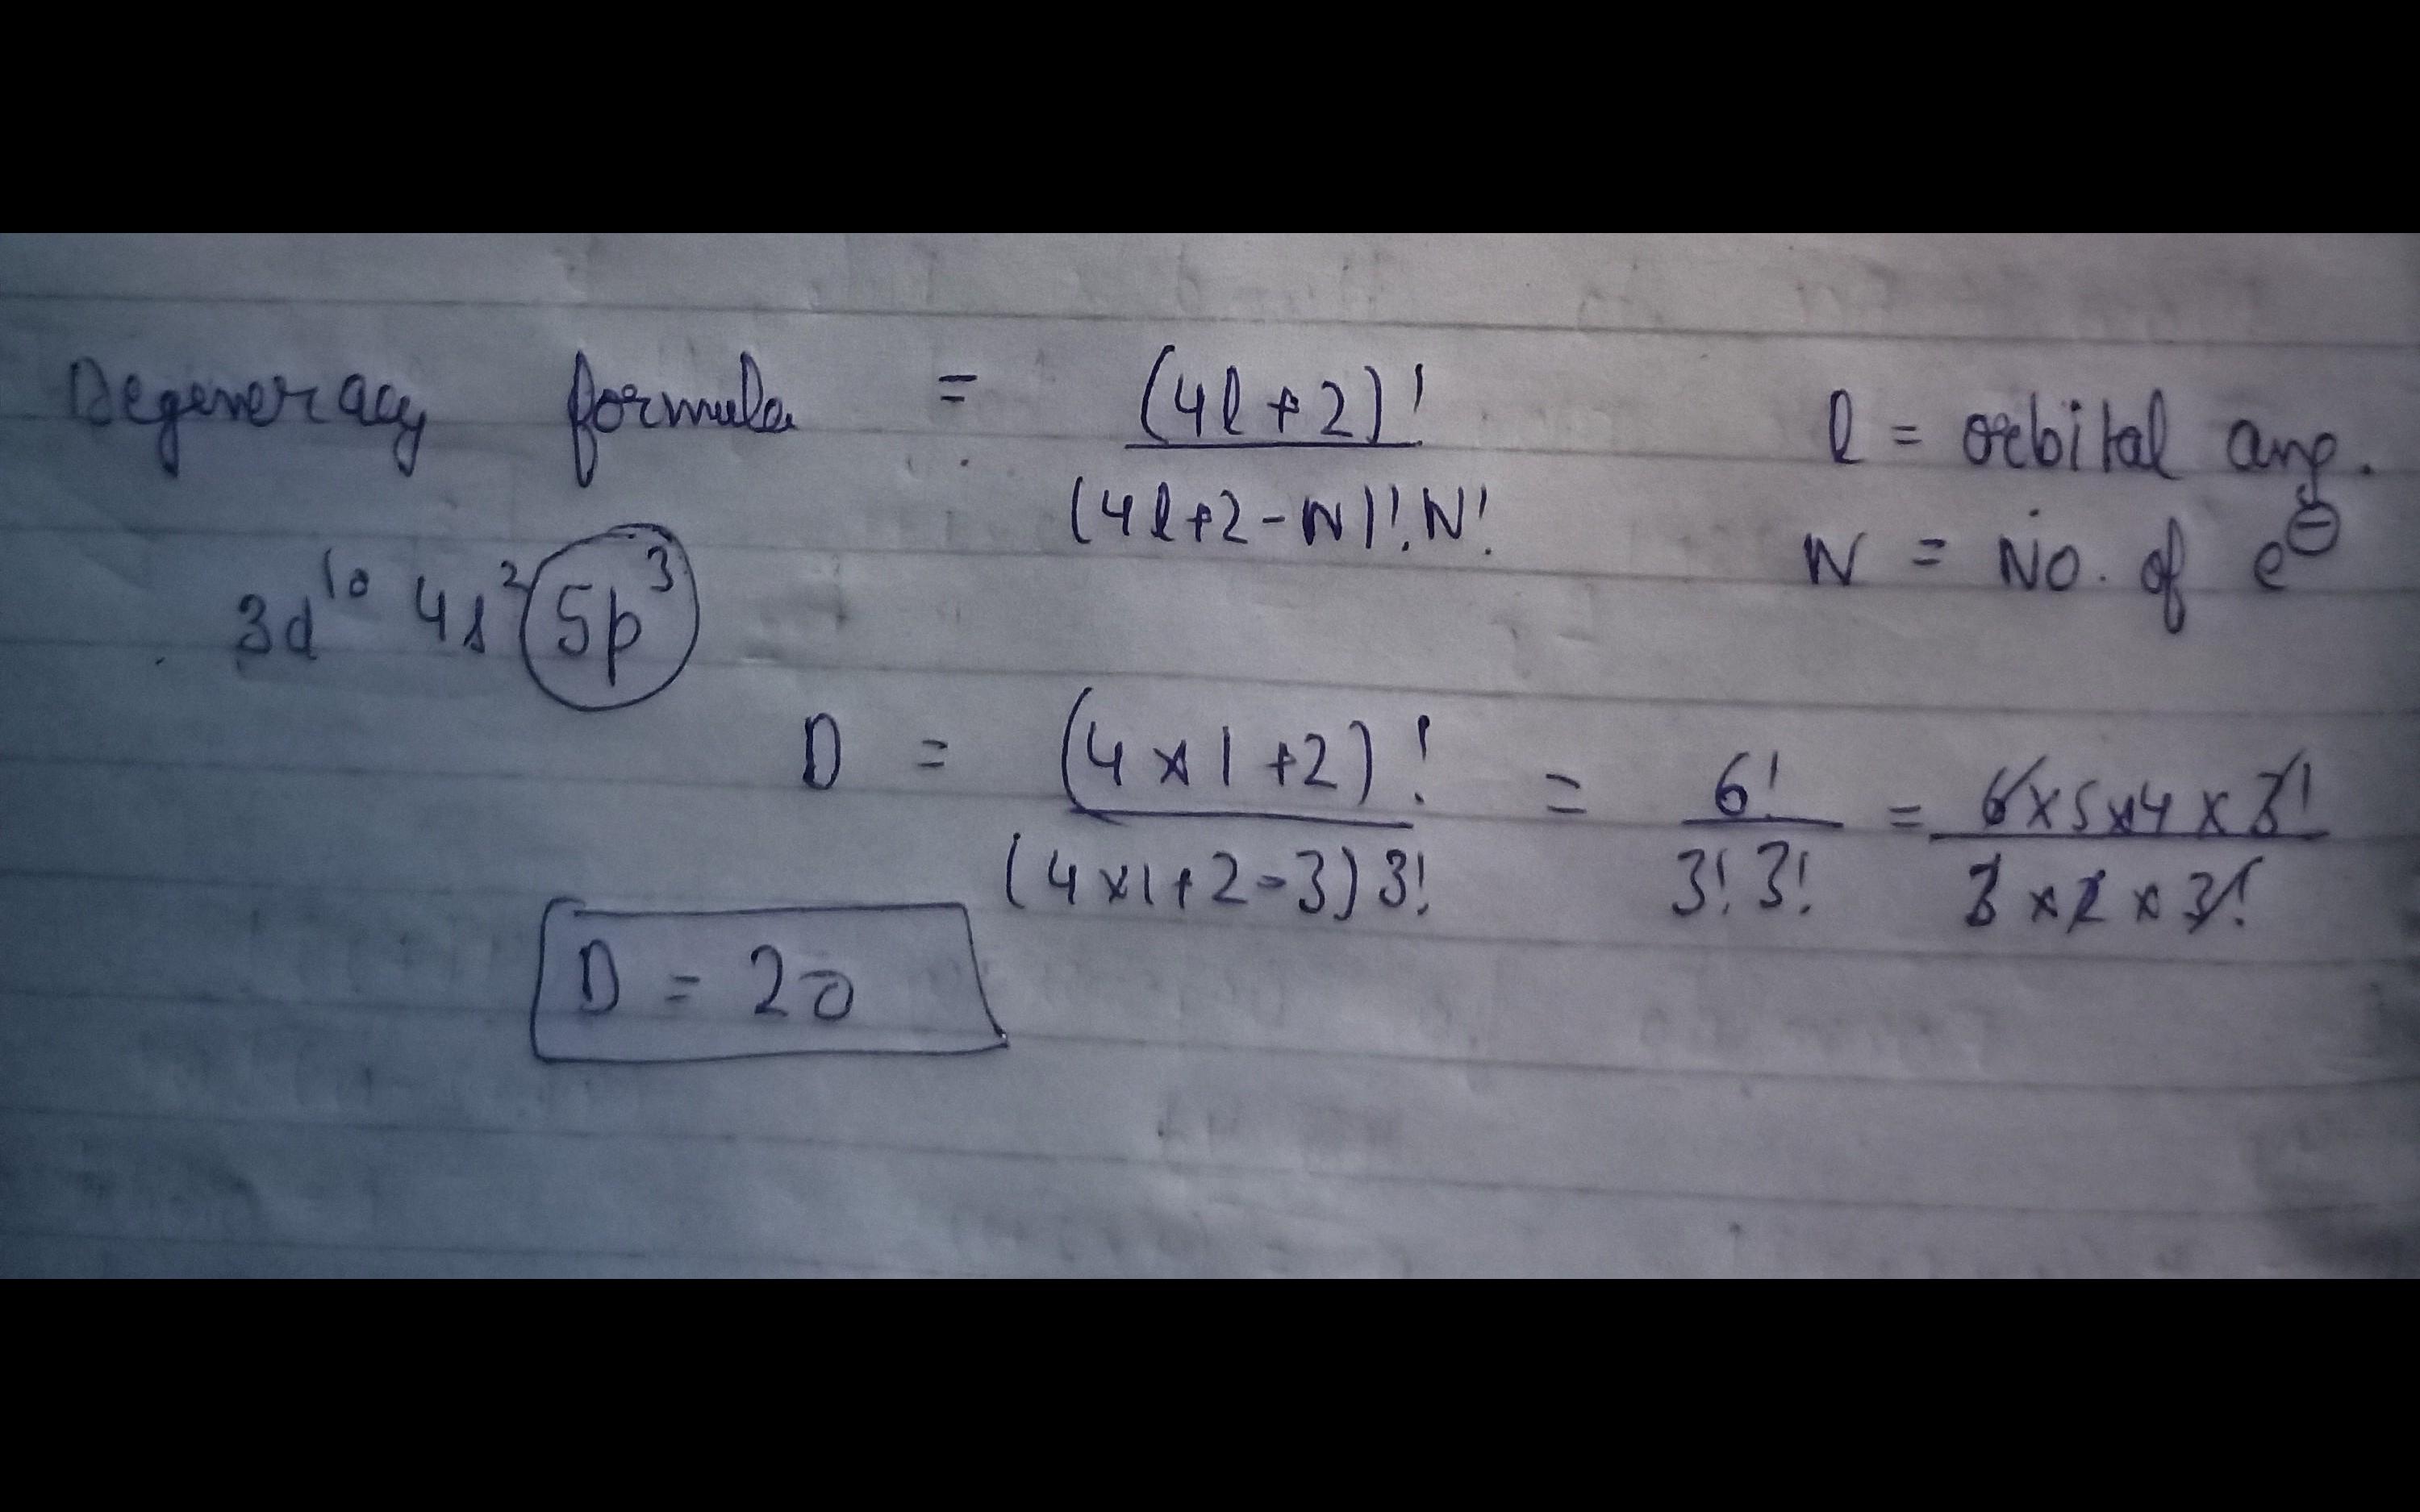 Degeneracy formula = (4l+2)! / (4l+2-N)!.N! l = orbital ang.
N = No. of e⊖
3d¹⁰ 4s² 5p³
D = (4×1+2)! / (4×1+2-3)3! = 6! / 3!3! = 6×5×4×3! / 3×2×3!
D = 20